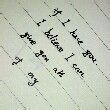 if I have you
I believe I can
give you all
of my